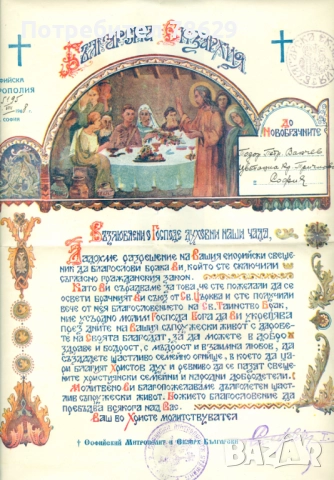 Българска Екзархия
СОФИЙСКА
МИТРОПОЛИЯ
СОФИЯ
ДО
НОВОБРАЧНИТЕ
София
Възлюблени о Господе духовни наши чада,
Дадохме разрешение на Вашия енорийски свещеник
да благослови брака Ви, който сте сключили
съгласно гражданския закон.
Като Ви сърадваме за това, че сте пожелали да се
освети брачният Ви съюз от Св. Църква и сте получили
вече от нея благословението на Св. Тайнство Брак,
ние усърдно молим Господа Бога да Ви укрепява
през дните на Вашия съпружески живот с даровете
на Своята благодат, за да можете в добро
здраве и бодрост, с мъдрост и взаимна любов, да
създадете щастливо семейно огнище, в което да цари
благият Христов дух и ревниво да се пазят свещените
християнски семейни и народни добродетели.
Молитвено Ви благопожелаваме дългоѣтен
щастлив съпружески живот. Божието благословение да
пребъдва всякога над Вас.
Ваш во Христе молитствувател
† Софийский Митрополит и Екзарх Български
bazar.bg